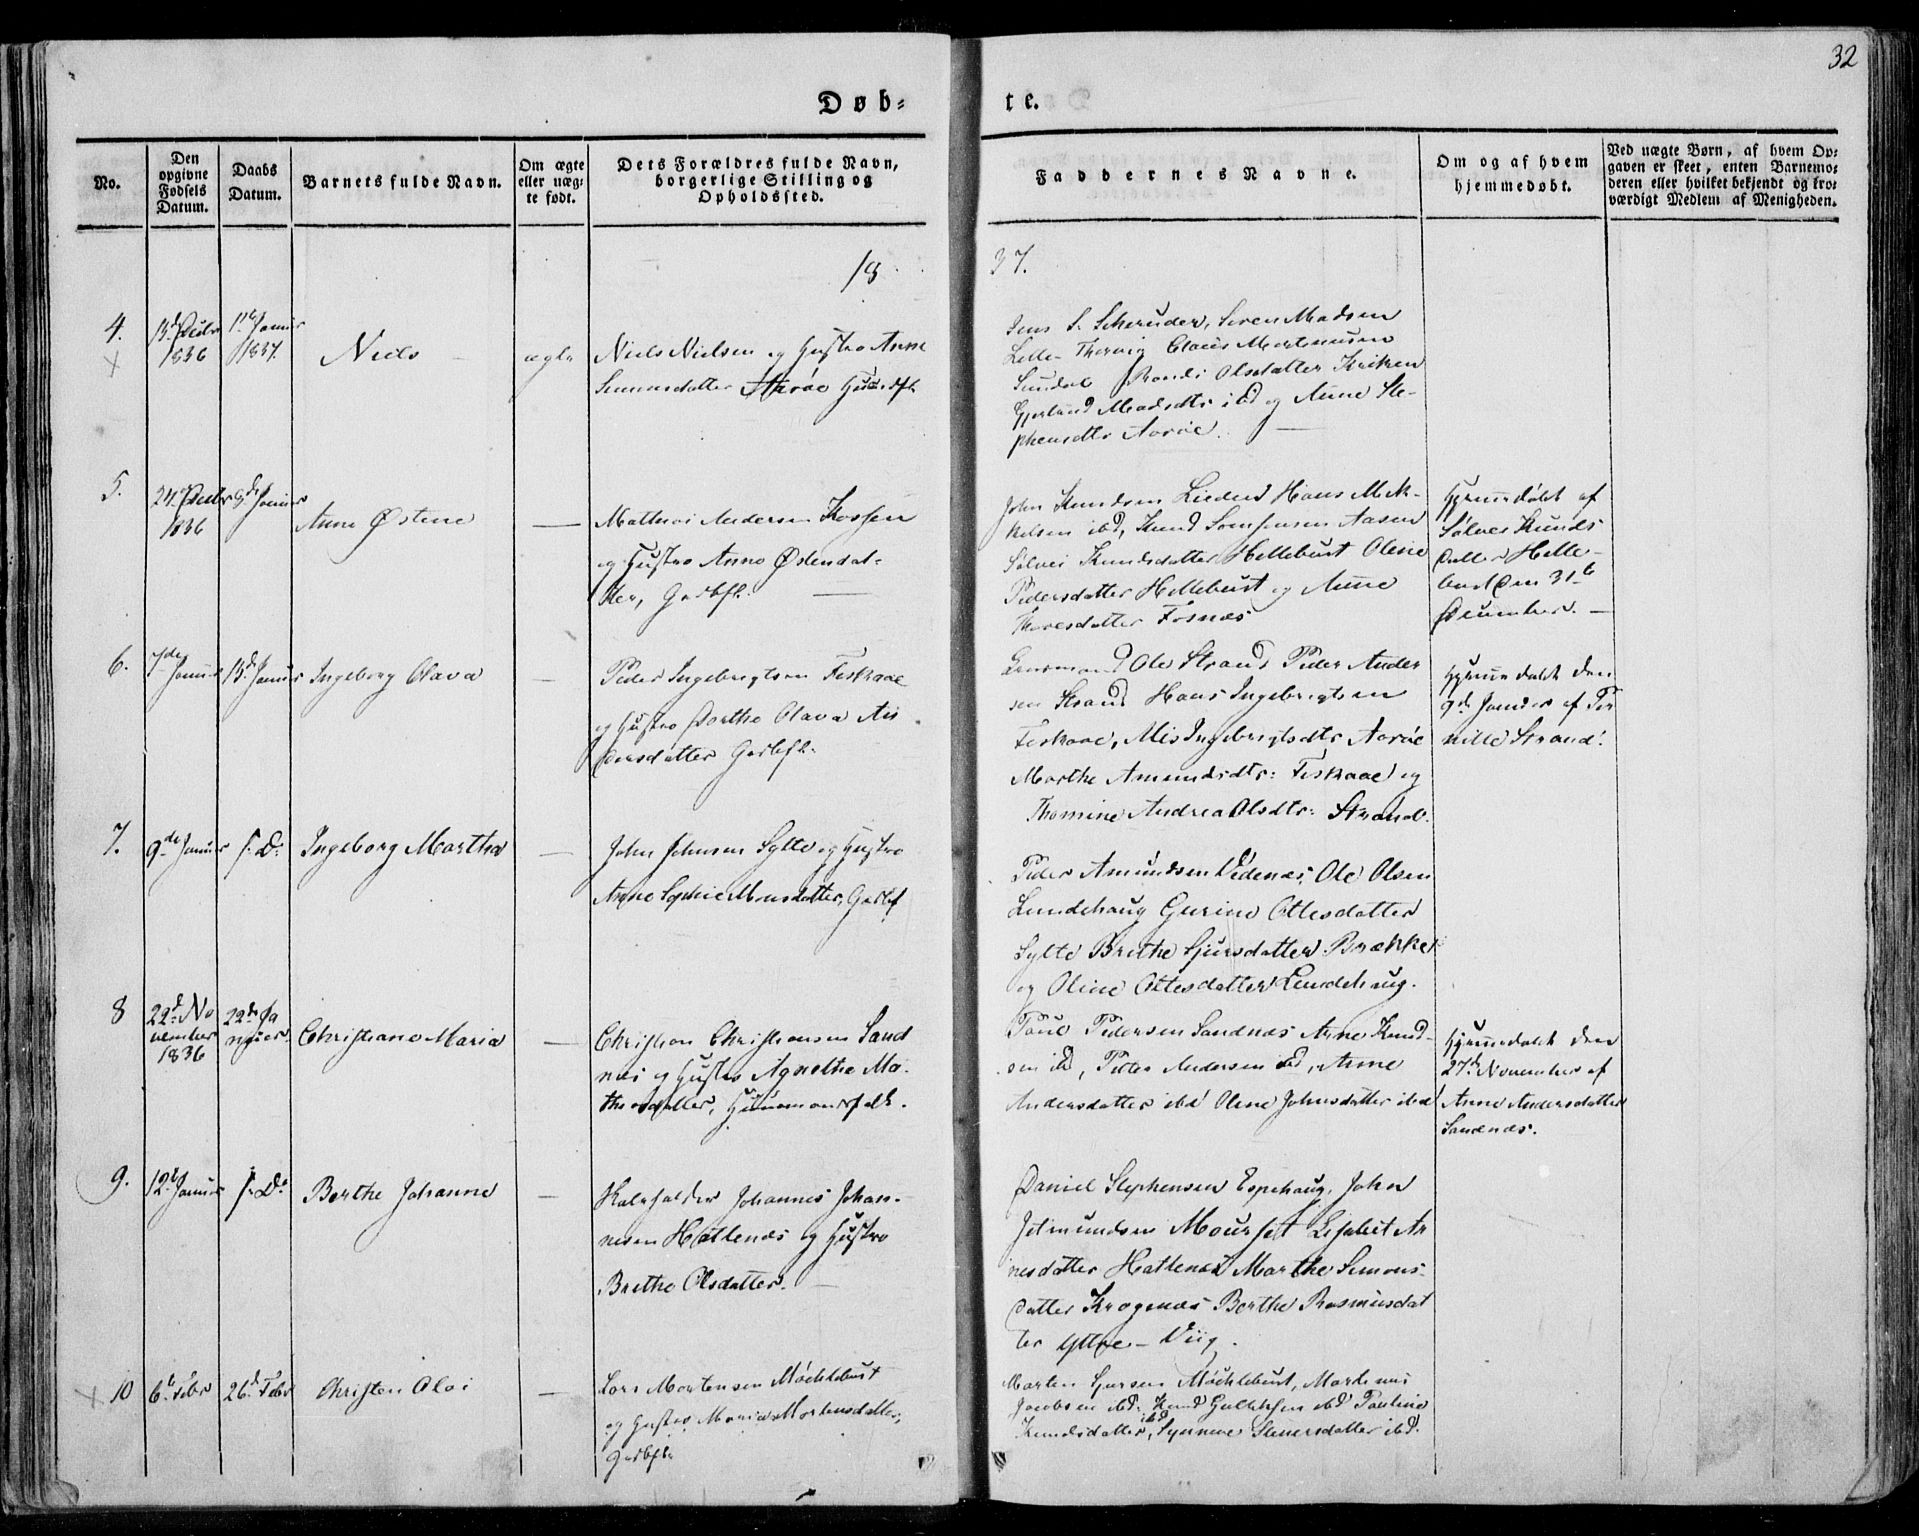 32
Døb=
te.
No.
Den
opgivne
Fødsels
Datum.
Daabs
Datum.
Barnets fulde Navn.
Om ægte
eller uæg-
te født.
Dets Forældres fulde Navn,
borgerlige Stilling og
Opholdssted.
Faddernes Navne.
Om og af hvem
hjemmedøbt.
Ved uægte Børn, af hvem Op-
gaven er skeet, enten Barnemo-
deren eller hvilket bekjendt og tro-
værdigt Medlem af Menigheden.
18
37.
4.
1836
1837.
Niels
ægte
Niels Nielsen og Hustro Anne
Aarøe
Jens S. Søren Madsen
Lille Claus
Olsdatter
Madsdtr ibd og Anne Ste-
phensdtr Aarøe.
5.
24
1836
9de Januar
Anne Østine
Andersen
og Hustro Anne Østensdat-
ter, Gaardfk.
John Knudsen Hans Mik-
kelsen ibd, Knud Aasen
Sølvei Knudsdatter Hellebust Oline
Pedersdatter Hellebust og Anne
Thoresdatter Fosnæs
Hjemmedøbt af
Sølvei Knuds
datter Helle-
bust den 31te
December.
6.
7de Januar
Januar
Ingeborg Olava
Peder Ingebrigtsen Feskaae
og Hustro Dorthe Olava An
dersdatter Gaardfk.
Ole Strand Peder Ander
sen Strand Hans Ingebrigtsen
Feskaae, Ingebrigtsdtr Aarøe
Marthe Amundsdtr: Feskaae og
Thomine Andrea Olsdtr: Strand.
Hjemmedøbt den
9de Januar af Per
nille Strand.
7.
9de Januar
s. D.
Ingeborg Martha
John Johnsen Sylte og Hustro
Anne Sophie Monsdatter, Gaardf
Peder Amundsen Videnæs, Ole Olsen
Lundehaug Gurine Ottesdatter
Sylte Brithe Sjursdatter Brække
og Oline Ottesdatter Lundehaug.
8
22d No
vember
1836
22de Ja
nuar.
Christiane Maria
Christian Christiansen Sand
næs og Hustro Agnethe Ma-
thiasdatter, Huusmandsfolk.
Poul Pedersen Sandnæs Arne Knud-
sen ibd, Peder Andersen ibd, Anne
Andersdatter ibd Oline Johnsdatter ibd
Hjemmedøbt den
27de November af
Anne Andersdatter
Sandnæs.
9.
12te Januar
s. D.
Berthe Johanne
Johannes Johan-
nesen Hatlenæs og Hustro
Brithe Olsdatter.
Daniel Stephensen Espehaug, John
Jetmundsen Mourset Lisabet Ar
nesdatter Hatlenæs Marthe Simons-
datter Kragenæs Berthe Rasmusdat
ter Yttre-Viig.
10
6te Febr
26d Febr
Christen Olai
Lars Mortensen Møcklebust
og Hustro Maria Mortensdatter,
Gaardfk.
Morten Sjursen Møcklebust,
Jacobsen ibd: Knud ibd Pauline
Knudsdatter ibd, Synneve Steuersdatter ibd.